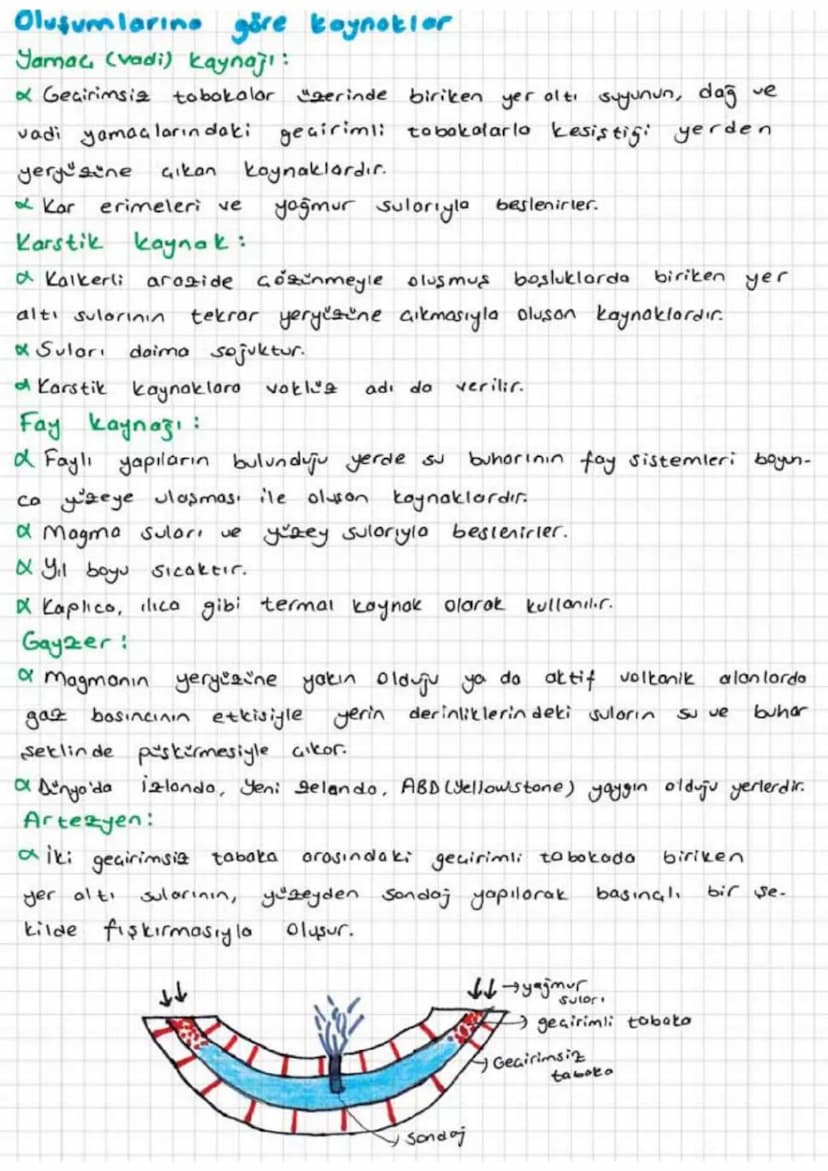 Oluşumlarına göre kaynaklar
Yamaç (vadi) kaynağı:
α Geçirimsiz tabakalar üzerinde biriken yer altı suyunun, dağ ve
vadi yamaçlarındaki geçirimli tabakalarla kesiştiği yerden
yeryüzüne çıkan kaynaklardır.
α Kar erimeleri ve yağmur sularıyla beslenirler.
Karstik kaynak:
α Kalkerli arazide çözünmeyle oluşmuş boşluklarda biriken yer
altı sularının tekrar yeryüzüne çıkmasıyla oluşan kaynaklardır.
α Suları daima soğuktur.
α Karstik kaynaklara voklüz adı da verilir.
Fay kaynağı:
α Faylı yapıların bulunduğu yerde su buharının fay sistemleri boyun-
ca yüzeye ulaşması ile oluşan kaynaklardır.
α Magma suları ve yüzey sularıyla beslenirler.
α Yıl boyu sıcaktır.
α Kaplıca, ılıca gibi termal kaynak olarak kullanılır.
Gayzer:
α Magmanın yeryüzüne yakın olduğu ya da aktif volkanik alanlarda
gaz basıncının etkisiyle yerin derinliklerindeki suların su ve buhar
şeklinde püskürmesiyle çıkar.
α Dünya'da İzlanda, Yeni Zelanda, ABD (Yellowstone) yaygın olduğu yerlerdir.
Artezyen:
α İki geçirimsiz tabaka arasındaki geçirimli tabakada biriken
yer altı sularının, yüzeyden sondaj yapılarak basınçlı bir şe-
kilde fışkırmasıyla oluşur.
→ yağmur
suları
→ geçirimli tabaka
→ Geçirimsiz
tabaka
sondaj